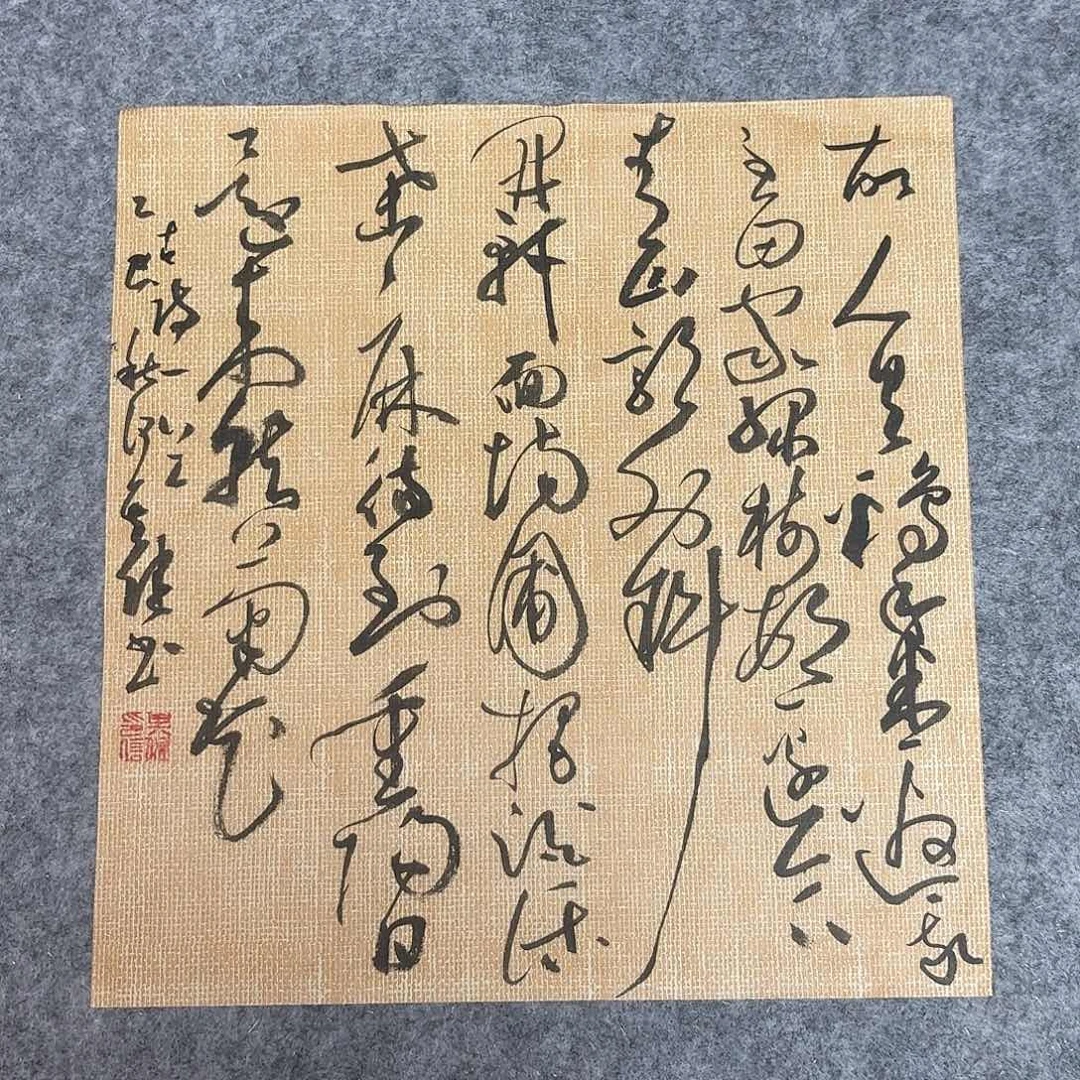 故人具鷄黍邀我
至田家綠樹村邊合
青山郭外斜
開軒面場圃把酒話
桑麻待到重陽日
還來就菊花
古詩一首
乙巳秋書